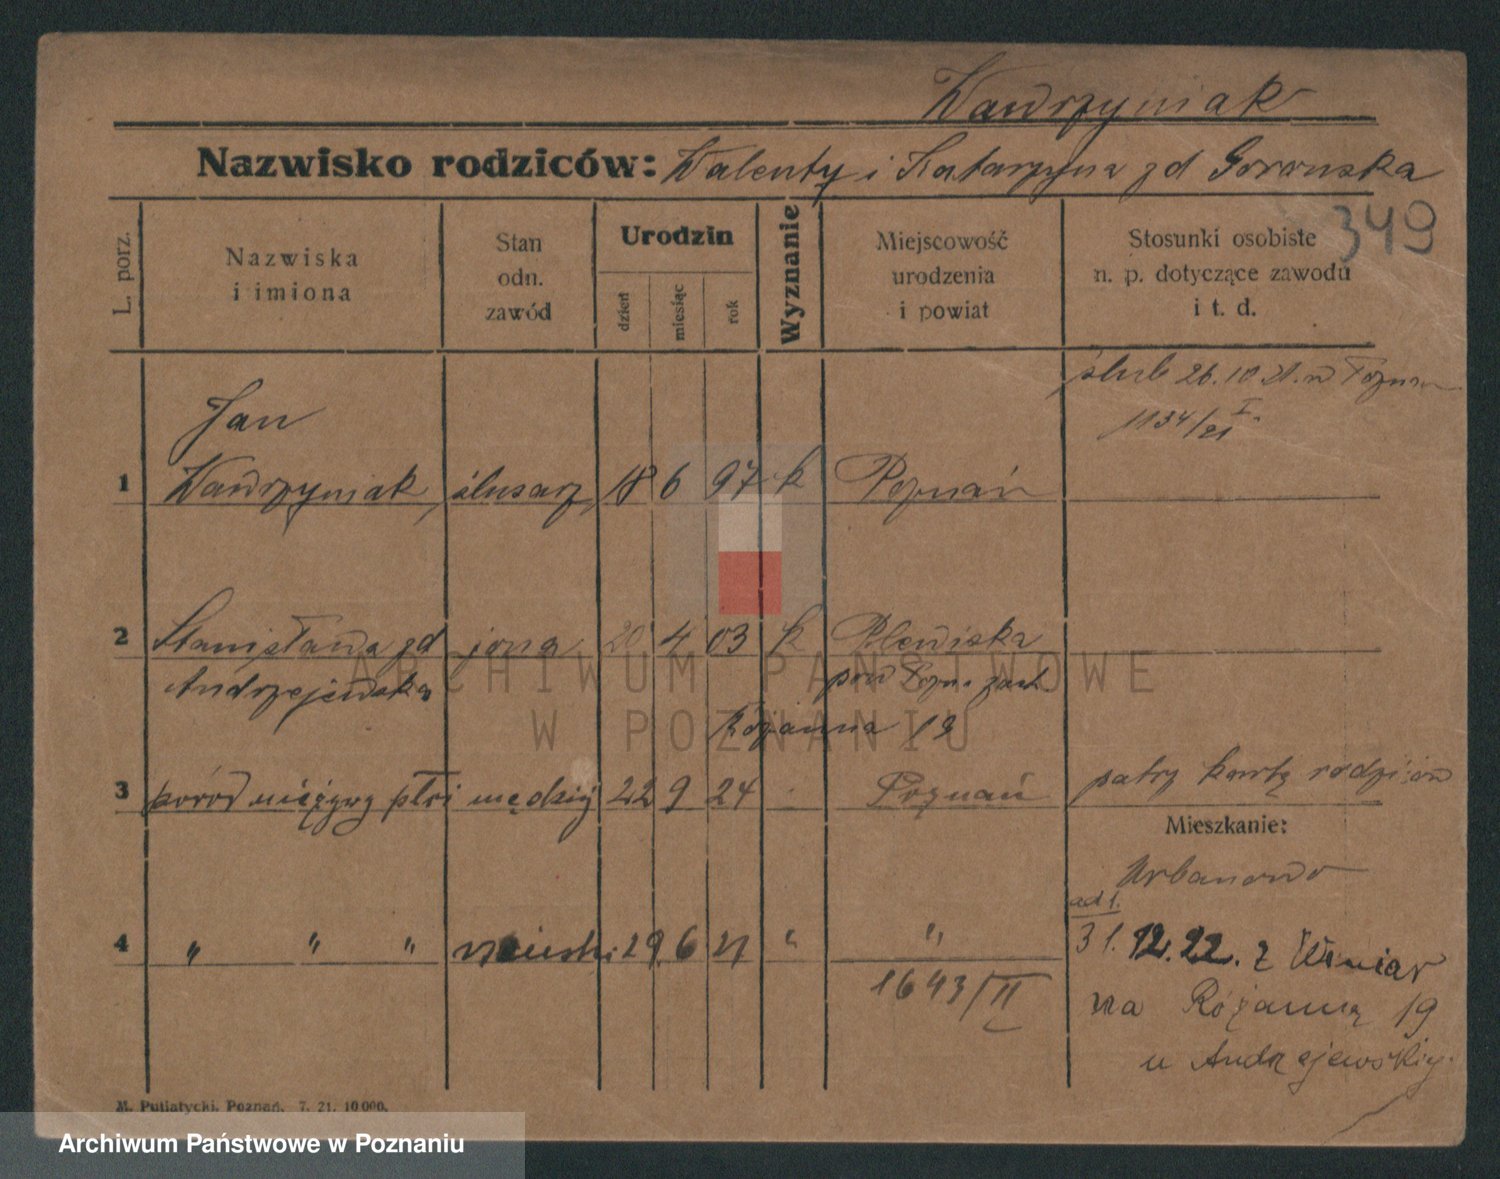 Wawrzyniak
Nazwisko rodziców: Walenty i Katarzyna zd Gorouska
349
L. porz.
Nazwiska
i imiona
Stan
odn.
zawód
Urodzin
dzień
miesiąc
rok
Wyznanie
Miejscowość
urodzenia
i powiat
Stosunki osobiste
n. p. dotyczące zawodu
i t. d.
ślub 26.10 21. w Pozna
1134/21 I
Jan
1 Wawrzyniak, ślusarz, 18 6 97 k Poznań
2 Stanisława zd żona 20 4 03 k Plewiska
Andrzejewska pow Pozn. zach
Różanna 19
3 poród nieżywy płci męzkiej 22 9 24 Poznań patrz kartę rodziców
Mieszkanie:
Urbanowo
4 " " " 29. 6 " "
ad 1.
31. 12. 22. z Winiar
1643/II
na Różanną 19
u Andrzejewskiej
M. Putiatycki, Poznań. 7. 21. 10 000.
ARCHIWUM PAŃSTWOWE
W POZNANIU
Archiwum Państwowe w Poznaniu